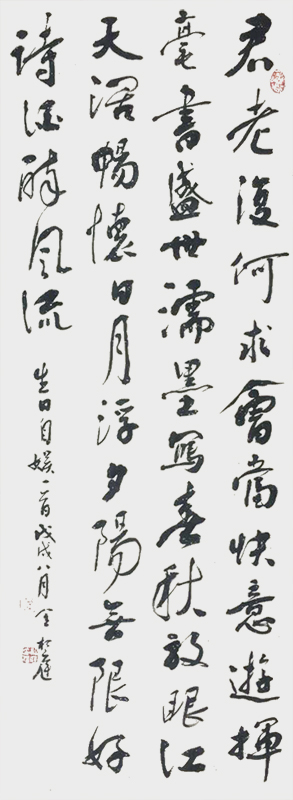 君老復何求會當快意遊揮
毫書盛世濡墨寫春秋放眼江
天闊暢懷日月浮夕陽無限好
詩酒醉風流
生日自娱一首戊戌八月